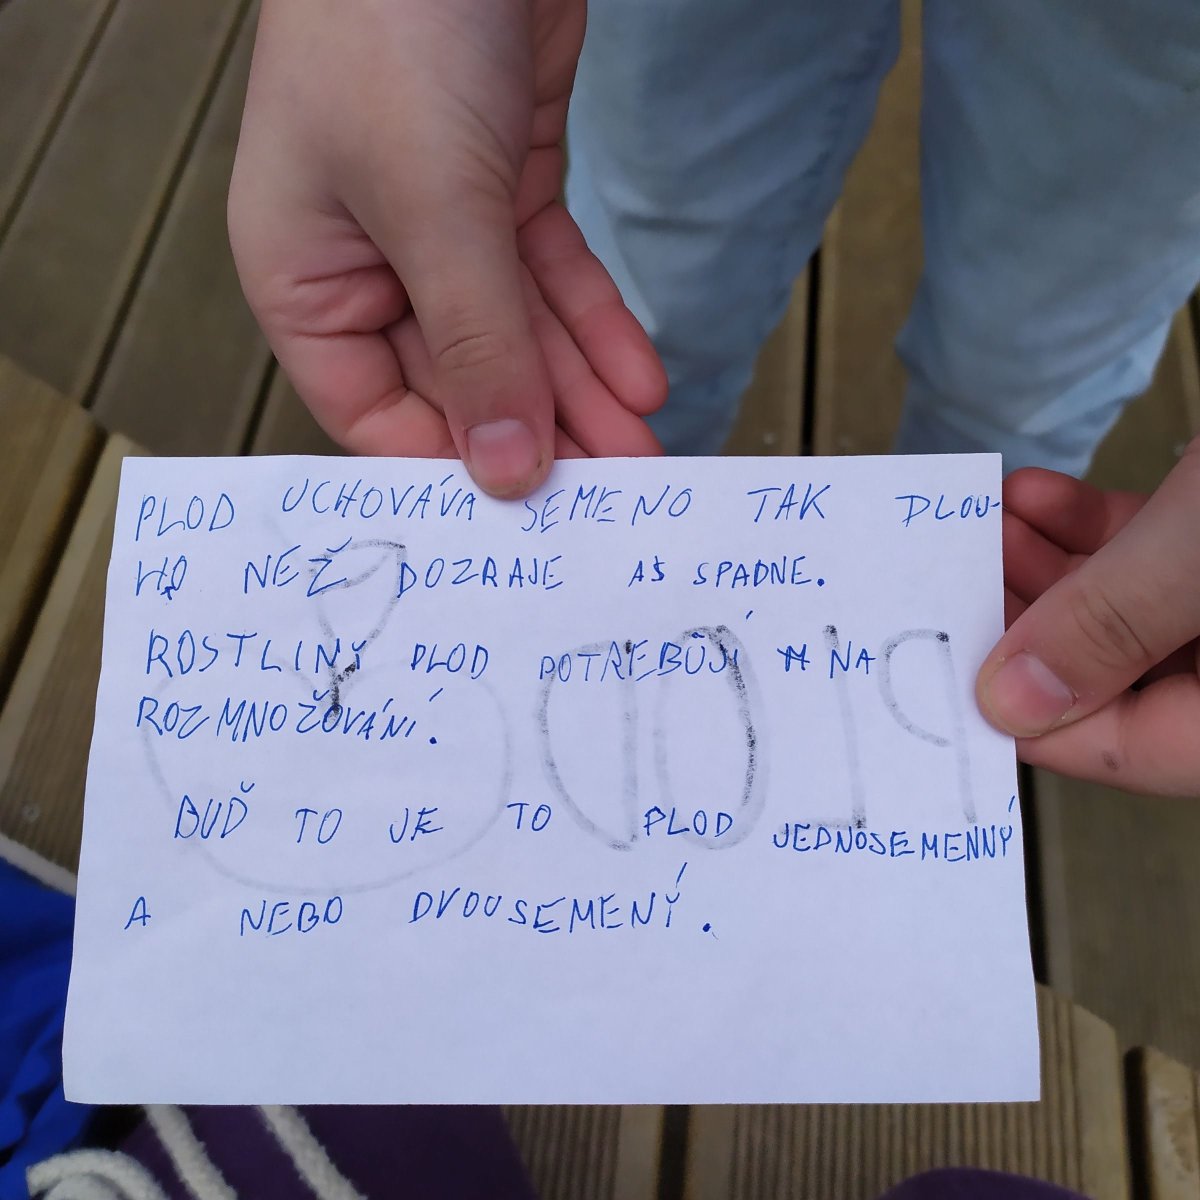 PLOD UCHOVÁVA SEMENO TAK DLOU-
HO NEŽ DOZRAJE AŠ SPADNE.
ROSTLINY PLOD POTREBŮJÍ NA
ROZMNOŽOVÁNÍ.
BUĎ TO JE TO PLOD JEDNOSEMENNÝ
A NEBO DVOUSEMENÝ.
PLOD